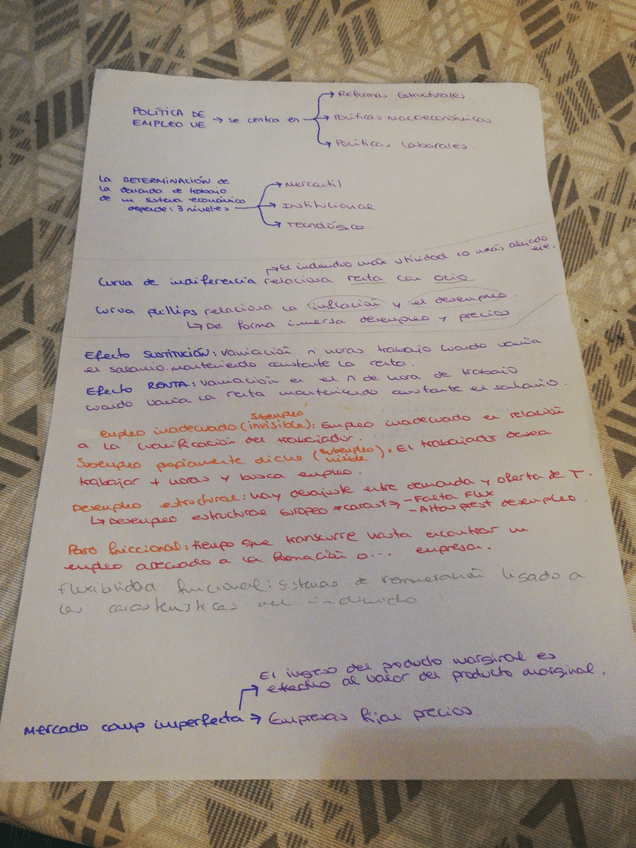 POLÍTICA DE EMPLEO UE → se centra en
→ Reformas Estructurales
→ Políticas Macroeconómicas
→ Políticas Laborales.
LA DETERMINACIÓN de
la demanda de trabajo
de un sistema económico
depende: 3 niveles
→ Mercantil
→ Institucional
→ Tecnológico
↱ El individuo más utilidad lo más alejado eje.
Curva de indiferencia relaciona renta con ocio
Curva phillips relaciona la inflación y el desempleo.
↳ De forma inversa desempleo y precios.
Efecto SUSTITUCIÓN: Variación n horas trabajo cuando varía
el salario manteniendo constante la renta.
Efecto RENTA: variación en el n de hora de trabajo
cuando varía la renta manteniendo constante el salario.
subempleo
empleo inadecuado (invisible): Empleo inadecuado en relación
a la cualificación del trabajador.
Subempleo propiamente dicho (subempleo visible). El trabajador desea
trabajar + horas y busca empleo.
Desempleo estructural: Hay desajuste entre demanda y oferta de T.
↳ Desempleo estructural Europeo → caract → - Falta Flux
- Altas prest desempleo.
Paro friccional: tiempo que transcurre hasta encontrar un
empleo adecuado a la formación o... empresa.
Flexiblidad funcional: sistemas de remuneración ligado a
las características del individuo
El ingreso del producto marginal es
efectivo al valor del producto marginal.
Mercado comp imperfecta → Empresas fijan precios.